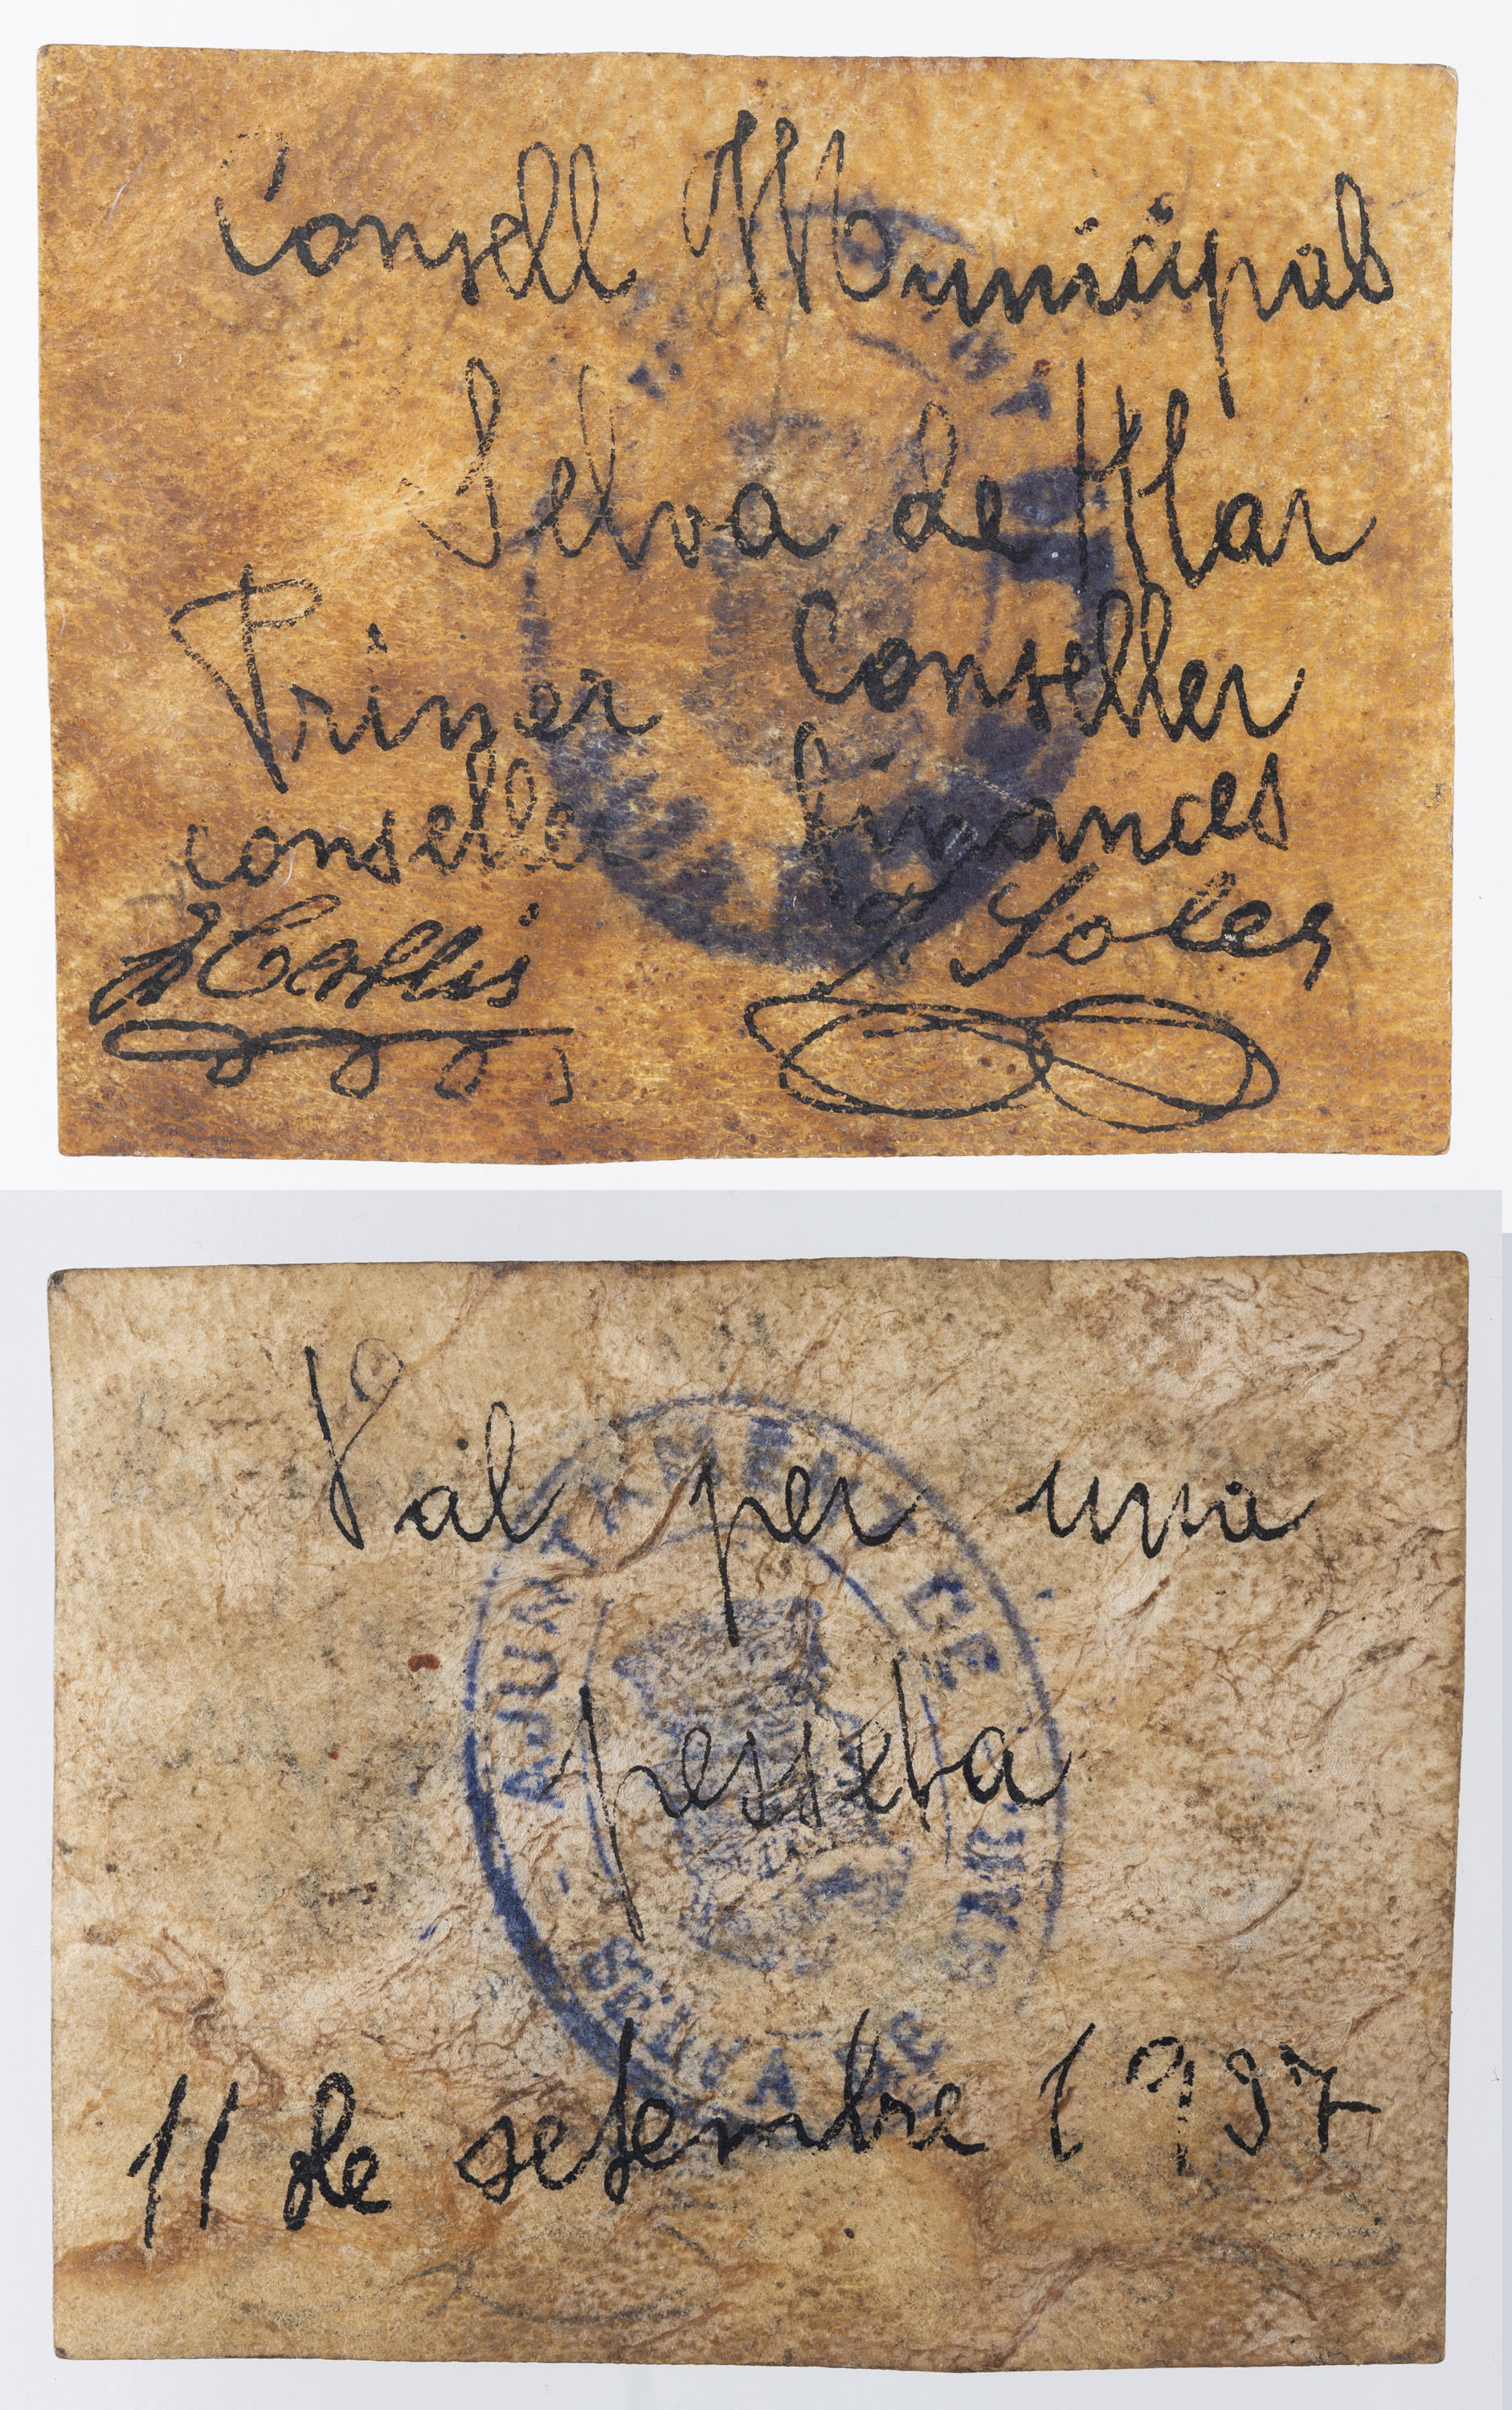 Consell Municipal
Selva de Mar
Primer Conseller
conselle finances
Soles
Val per una
pesseta
11 de setembre 1937
AJUNTAMENT DE
SELVA DE MAR